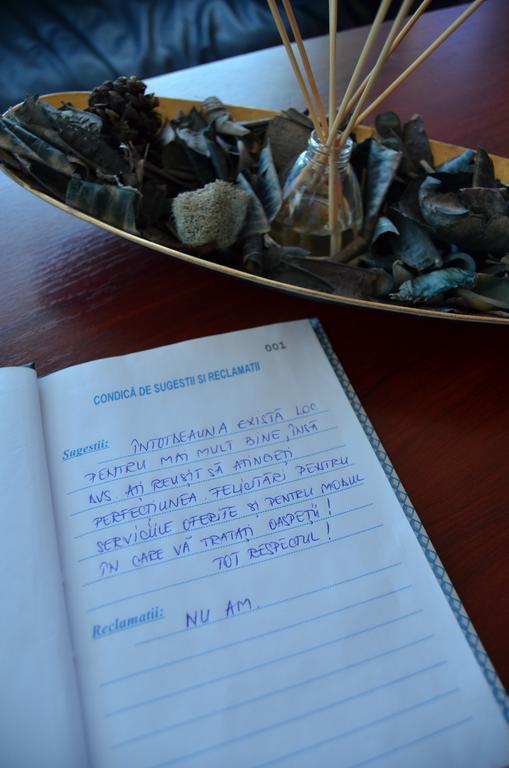 001
CONDICĂ DE SUGESTII SI RECLAMATII
Sugestii: ÎNTOTDEAUNA EXISTĂ LOC
PENTRU MAI MULT BINE, ÎNSĂ
DVS. AȚI REUȘIT SĂ ATINGEȚI
PERFECȚIUNEA. FELICITĂRI PENTRU
SERVICIILE OFERITE ȘI PENTRU MODUL
ÎN CARE VĂ TRATAȚI OASPEȚII!
TOT RESPECTUL!
Reclamatii: NU AM.